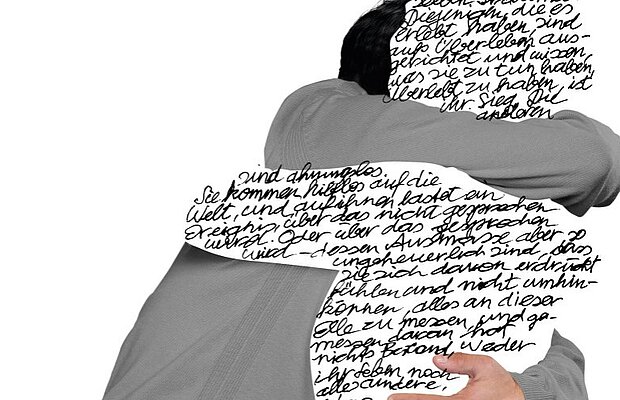 Diejenigen, die es
erlebt haben, sind
aufs Überleben aus-
gerichtet und wissen,
was sie zu tun haben,
Überlebt zu haben, ist
ihr Sieg. Die
anderen
sind ahnungslos.
Sie kommen hilflos auf die
Welt, und auf ihnen lastet ein
Ereignis, über das nicht gesprochen
wird. Oder über das gesprochen
wird – dessen Ausmasse aber so
ungeheuerlich sind, dass
sie sich davon erdrückt
fühlen und nicht umhin-
können, alles an dieser
Elle zu messen, und ge-
messen daran hat
nichts Bestand. Weder
ihr Leben noch
alles andere,